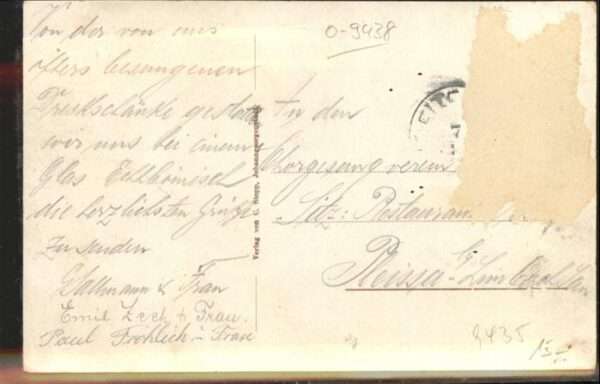 Von der von uns
öfters besungenen
Dreckschänke gestatten
wir uns bei einem
Glas Echtböhmisch
die herzlichsten Grüße
zu senden
& Frau
Emil Zech & Frau.
Paul Fröhlich u Frau
Verlag von C. Stopp, Johanngeorgenstadt
O-9438
An den
Chorgesangverein
Sitz: Restaurant
Pleissa b/ Limbach i/Sa
9435